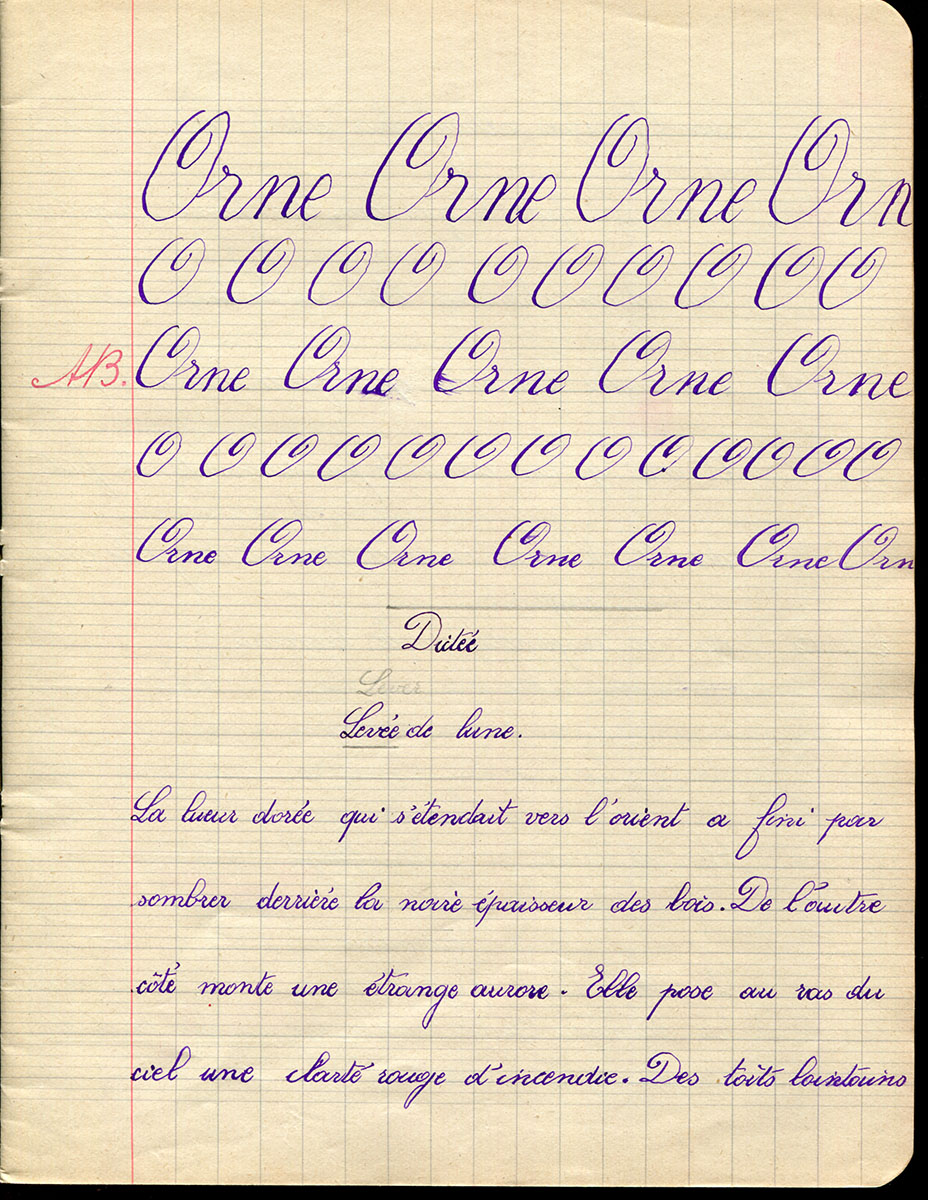 Orne Orne Orne Orn
O O O O O O O O O O
AB. Orne Orne Orne Orne Orne
O O O O O O O O O O O O O
Orne Orne Orne Orne Orne Orne Orn
Dictée
Lever
Levée de lune.
La lueur dorée qui s'étendait vers l'orient a fini par
sombrer derrière la noire épaisseur des bois. De l'autre
côté monte une étrange aurore. Elle pose au ras du
ciel une clarté rouge d'incendie. Des toits lointains